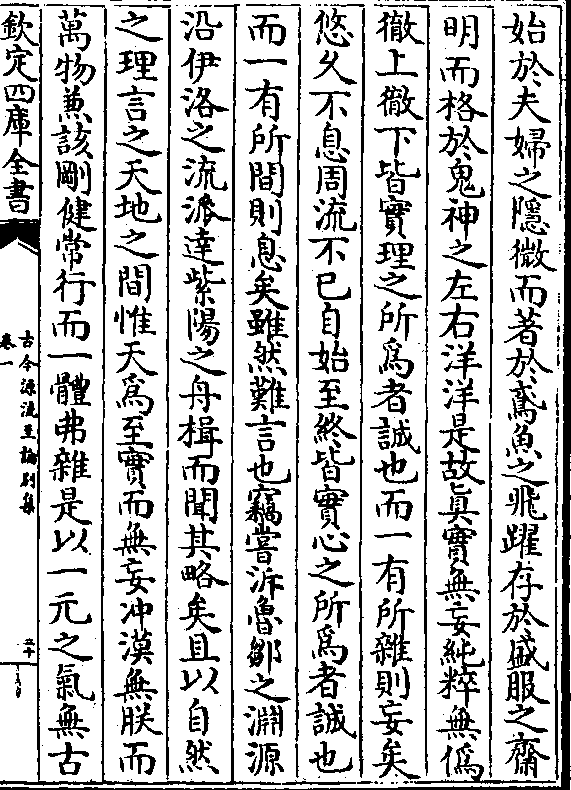 始於夫婦之隱微而著於鳶魚之飛躍存於盛服之齋
明而格於鬼神之左右洋洋是故真實無妄純粹無僞
徹上徹下皆實理之所爲者誠也而一有所雜則妄矣
悠久不息周流不已自始至終皆實心之所爲者誠也
而一有所間則息矣雖然難言也竊嘗泝魯鄒之淵源
沿伊洛之流派達紫陽之舟楫而聞其略矣且以自然
之理言之天地之間惟天爲至實而無妄冲漠無朕而
萬物兼該剛健常行而一體弗雜是以一元之氣無古
欽定四庫全書
古今源流至論別集
卷一